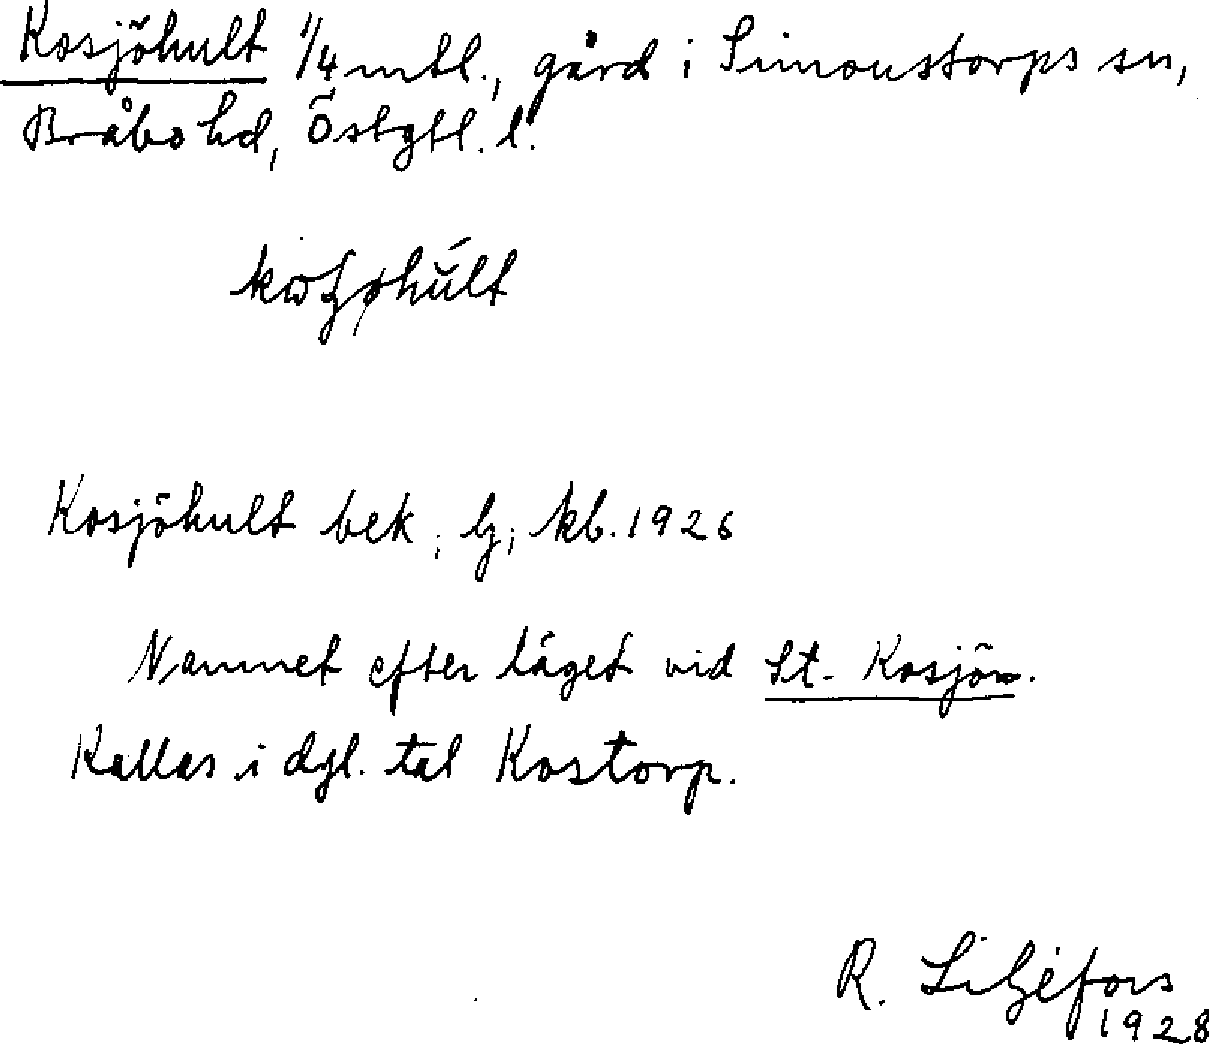 Kosjöhult 1/4 mtl., gård i Simonstorps sn,
Bråbo hd, Östgtl. l.
Kosjöhult bek. lj, kb. 1926
Namnet efter läget vid St. Kosjön.
Kallas i dgl. tal Kostorp.
R. Liljefors
1928